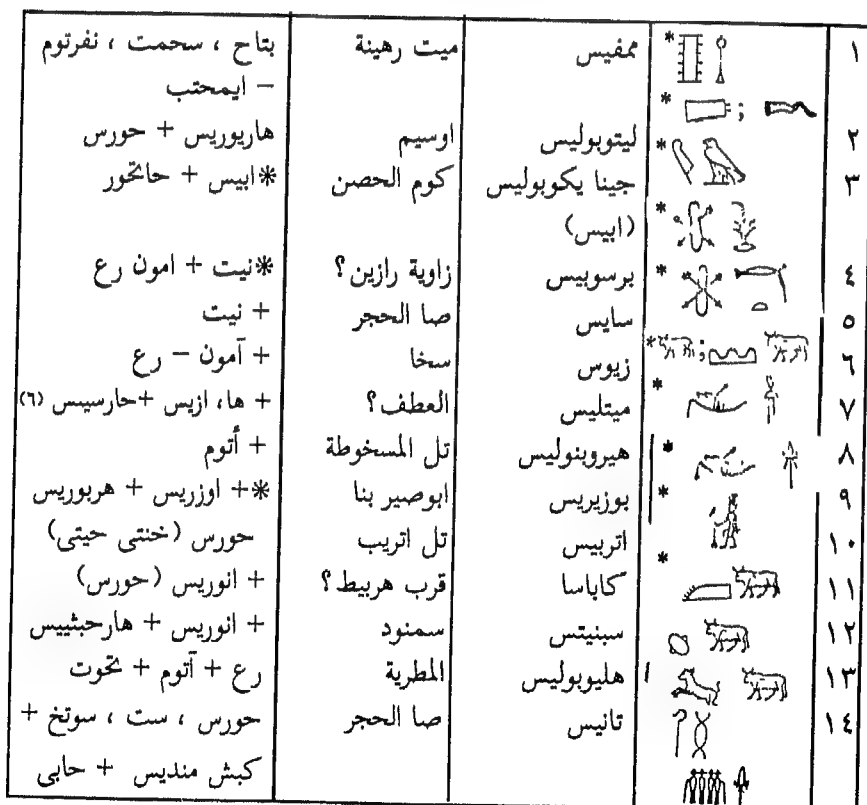 ١ ممفيس ميت رهينة بتاح ، سحمت ، نفرتوم
– ايمحتب
٢ ليتوبوليس اوسيم هاربوريس + حورس
٣ جينا يكوبوليس كوم الحصن *ابيس + حاتحور
(ابيس)
٤ برسوبيس زاوية رازين؟ *نيت + امون رع
٥ سايس صا الحجر + نيت
٦ زيوس سخا + آمون – رع
٧ ميتليس العطف؟ + ها، ازيس +حارسيس (٦)
٨ هيروبنوليس تل المسخوطة + أتوم
٩ بوزيريس ابوصير بنا *+ اوزريس + هربوريس
١٠ اتربيس تل اتريب حورس (خنتى حيتى)
١١ كاباسا قرب هربيط؟ + انوريس (حورس)
١٢ سبنيتس سمنود + انوريس + هارحبثييس
١٣ هليوبوليس المطرية رع + آتوم + تحوت
١٤ تانيس صا الحجر حورس ، ست ، سوتخ +
كبش منديس + حابى